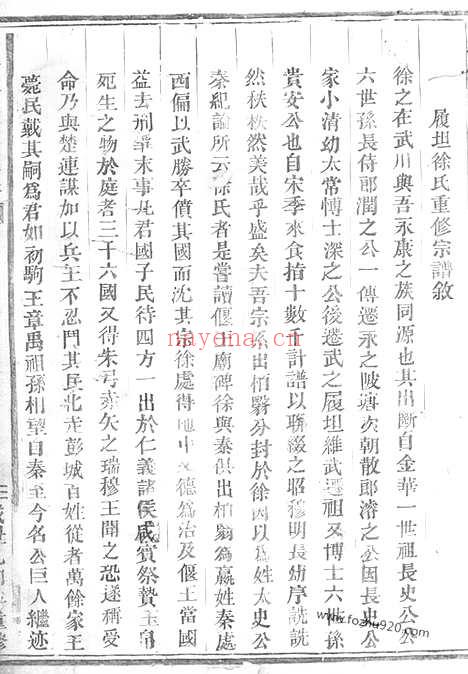 履坦徐氏重修宗譜敘
徐之在武川與吾永康之族同源也其出斷自金華一世祖長史公公
六世孫長侍郎潤之公一傳遷永之陂唐次朝散郎濬之公因長史公
家小清幼太常博士深之公後遷武之履坦維武遷祖又博士六世孫
貴安公也自宋季來食指十數千計譜以聯綴之昭穆明長幼序詵詵
然秩秩然美哉乎盛矣夫吾宗系出栢翳分封於徐因以爲姓太史公
秦紀論所云徐氏者是嘗讀偃王廟碑徐與秦俱出栢翳爲嬴姓秦處
西偏以武勝卒僨其國而沈其宗徐處得地中文德爲治及偃王當國
益去刑爭末事君國子民待四方一出於仁義諸侯咸賓祭贄玉帛
死生之物於庭者三十六國又得朱弓赤矢之瑞穆王聞之恐遂稱受
命乃與楚連謀加以兵王不忍鬥其民北走彭城百姓從者萬餘家王
薨民戴其嗣爲君如初駒王章禹祖孫相望自秦至今名公巨人繼迹
nayona.cn
www.fozhu920.com